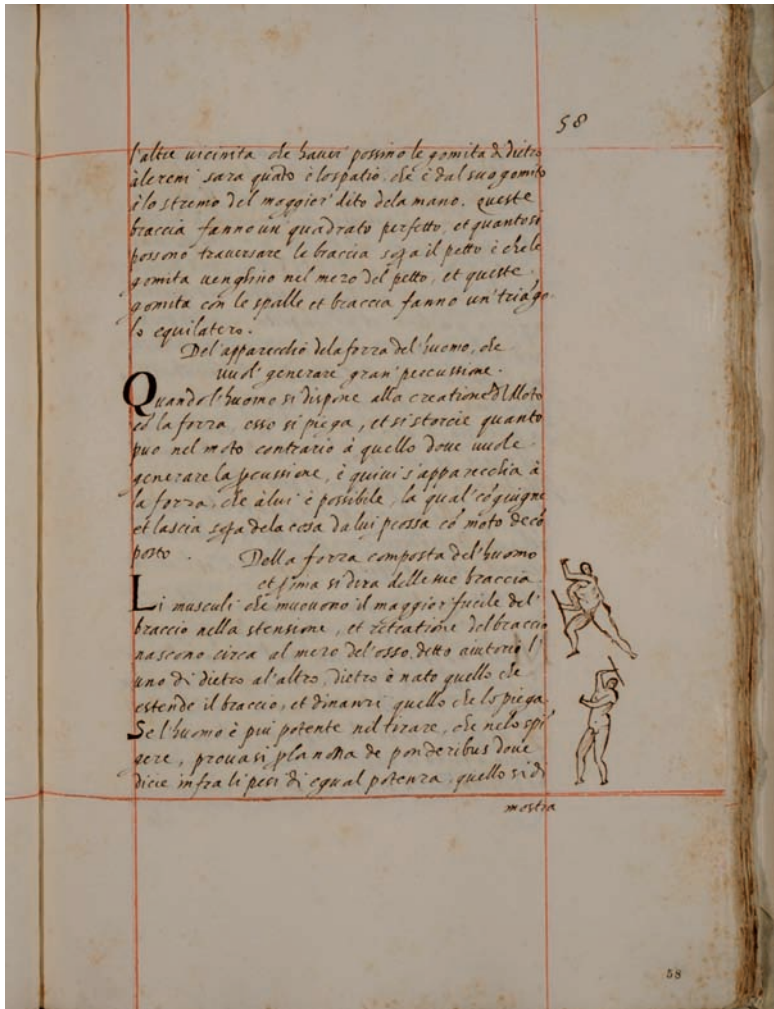 58
l'altre uicinita che hauer' possino le gomita di dietro
àle reni sara quãto è lo spatio, che è dal suo gomito
à lo stremo del maggior' dito dela mano. queste
braccia fanno un' quadrato perfetto, et quanto si
possono trauersare le braccia sop̃a il petto è che le
gomita uenghino nel mezo del petto, et queste
gomita con le spalle et braccia fanno un' triãgo
lo equilatero.
Del'apparecchio dela forza del'huomo, che
uuol' generare gran' percussione.
Quando l'huomo si dispone alla creatione del Moto
cõ la forza, esso si piega, et si storcie quanto
puo nel moto contrario à quello doue uuole
generare la pcussione, è quiui s'apparecchia à
la forza, che à lui è possibile, la qual' cõgiugne
et lascia sop̃a dela cosa da lui pcossa cõ moto decõ
posto.
Della forza composta del'huomo
et p̃ima si dira delle sue braccia
Li musculi che muouono il maggior' fucile del'
braccio nella stensione, et retratione del braccio
nascono circa al mezo del'osso detto aiutorio l'
uno di dietro al'altro, dietro è nato quello che
estende il braccio, et dinanzi quello che lo piega.
Se l'huomo è piu potente nel tirare, che nelo spĩ
gere, prouasi p la nona de ponderibus doue
dicie infra li pesi di egual potenza, quello si di
mostra
58